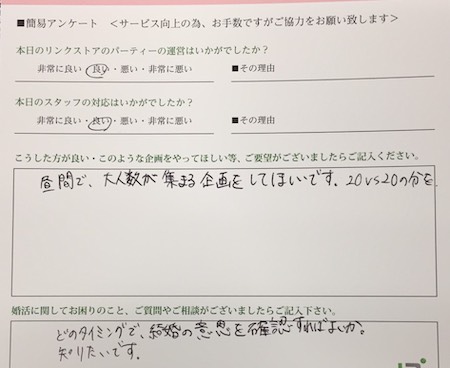 ■簡易アンケート　＜サービス向上の為、お手数ですがご協力をお願い致します＞
本日のリンクストアのパーティーの運営はいかがでしたか？
非常に良い・良い・悪い・非常に悪い　■その理由
本日のスタッフの対応はいかがでしたか？
非常に良い・良い・悪い・非常に悪い　■その理由
こうした方が良い・このような企画をやってほしい等、ご要望がございましたらご記入ください。
昼間で、大人数が集まる企画をしてほしいです。20vs20の分を
婚活に関してお困りのこと、ご質問やご相談がございましたらご記入下さい。
どのタイミングで、結婚の意思を確認すればよいか。
知りたいです。